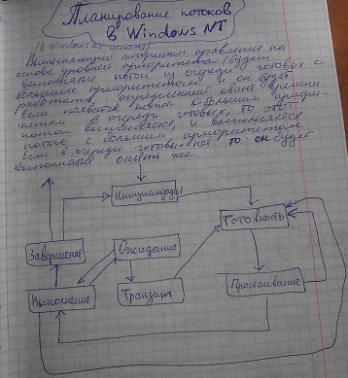 Планирование потоков
в Windows NT
(В Windows NT
Вытесняющий алгоритм управление на
основе уровней приоритета (будет
выполняться поток из очереди готовых с
большим приоритетом и он будет
работать определенный квант времени
Если появится поток с большим приори-
тетом в очереди готовых, то тот
поток вытесняется, и выполняется
поток с большим приоритетом
Если в очереди готовых нет то он будет
выполняться опять же.
Инициализация
Готовность
Завершение
Ожидание
Выполнение
Транзит
Простаивание